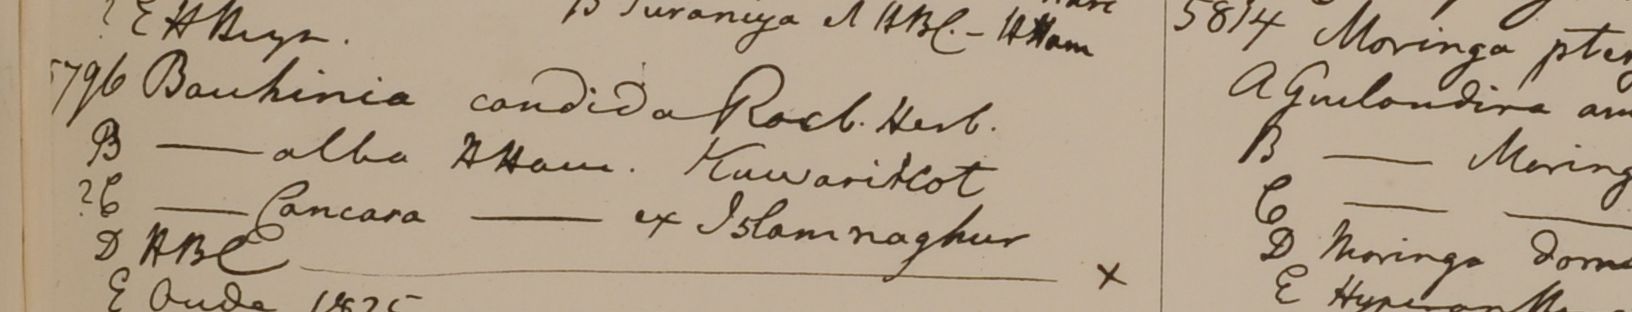 ? E H Heyn.
B Turaniya M HBC. - HHam
5796 Bauhinia candida Roxb. Herb.
B — alba HHam. Kuwarikot
?C — Cancara — ex Islamnaghur
D HBC — x
E Oude 1825
5814 Moringa pter
A Guilandina
B — Moring
C — —
D Moringa
E